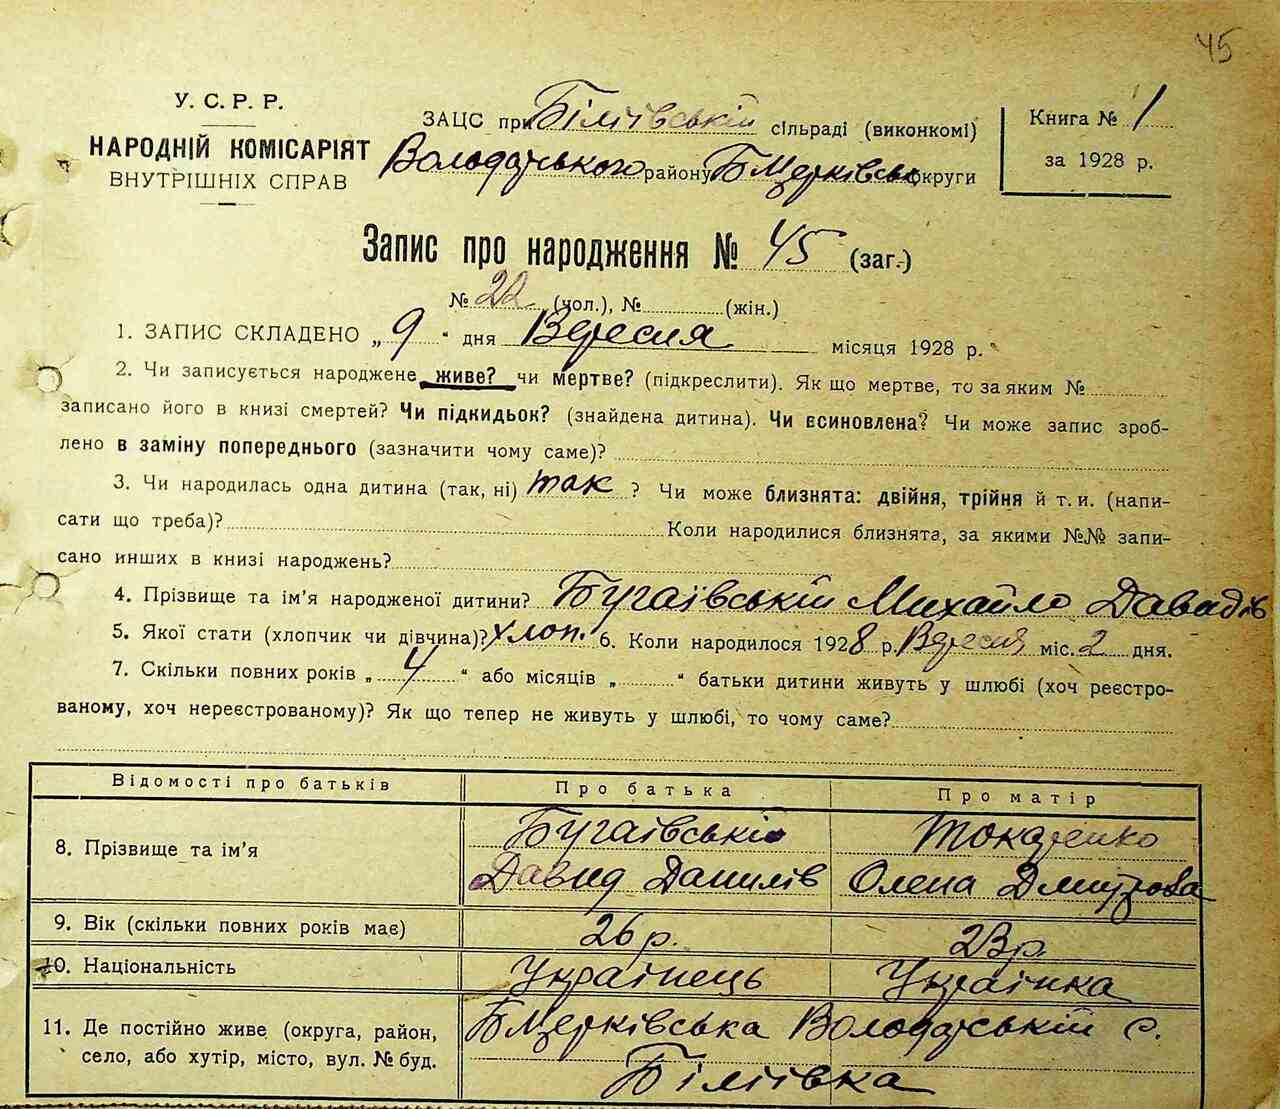 45
У. С. Р. Р.
НАРОДНІЙ КОМІСАРІЯТ
ВНУТРІШНІХ СПРАВ
ЗАЦС при Біліївській сільраді (виконкомі)
Володарського району БЦерківськ округи
Книга № 1
за 1928 р.
Запис про народження № 45 (заг.)
№ 22 (чол.), № (жін.)
1. ЗАПИС СКЛАДЕНО „ 9 “ дня Вересня місяця 1928 р.
2. Чи записується народжене живе? чи мертве? (підкреслити). Як що мертве, то за яким №
записано його в книзі смертей? Чи підкидьок? (знайдена дитина). Чи всиновлена? Чи може запис зроб-
лено в заміну попереднього (зазначити чому саме)?
3. Чи народилась одна дитина (так, ні) так ? Чи може близнята: двійня, трійня й т. и. (напи-
сати що треба)? Коли народилися близнята, за якими №№ запи-
сано инших в книзі народжень?
4. Прізвище та ім’я народженої дитини? Бугаївській Михайло Давидів
5. Якої стати (хлопчик чи дівчина)? хлоп. 6. Коли народилося 1928 р. Вересня міс. 2 дня.
7. Скільки повних років „ 4 “ або місяців „ “ батьки дитини живуть у шлюбі (хоч реєстро-
ваному, хоч нереєстрованому)? Як що тепер не живуть у шлюбі, то чому саме?
Відомості про батьків Про батька Про матір
8. Прізвище та ім’я Бугаївській Токаренко
Давид Данилів Олена Дмитрова
9. Вік (скільки повних років має) 26 р. 23 р.
10. Національність Українець Українка
11. Де постійно живе (округа, район, БЦерківська Володарській с.
село, або хутір, місто, вул. № буд. Біліївка